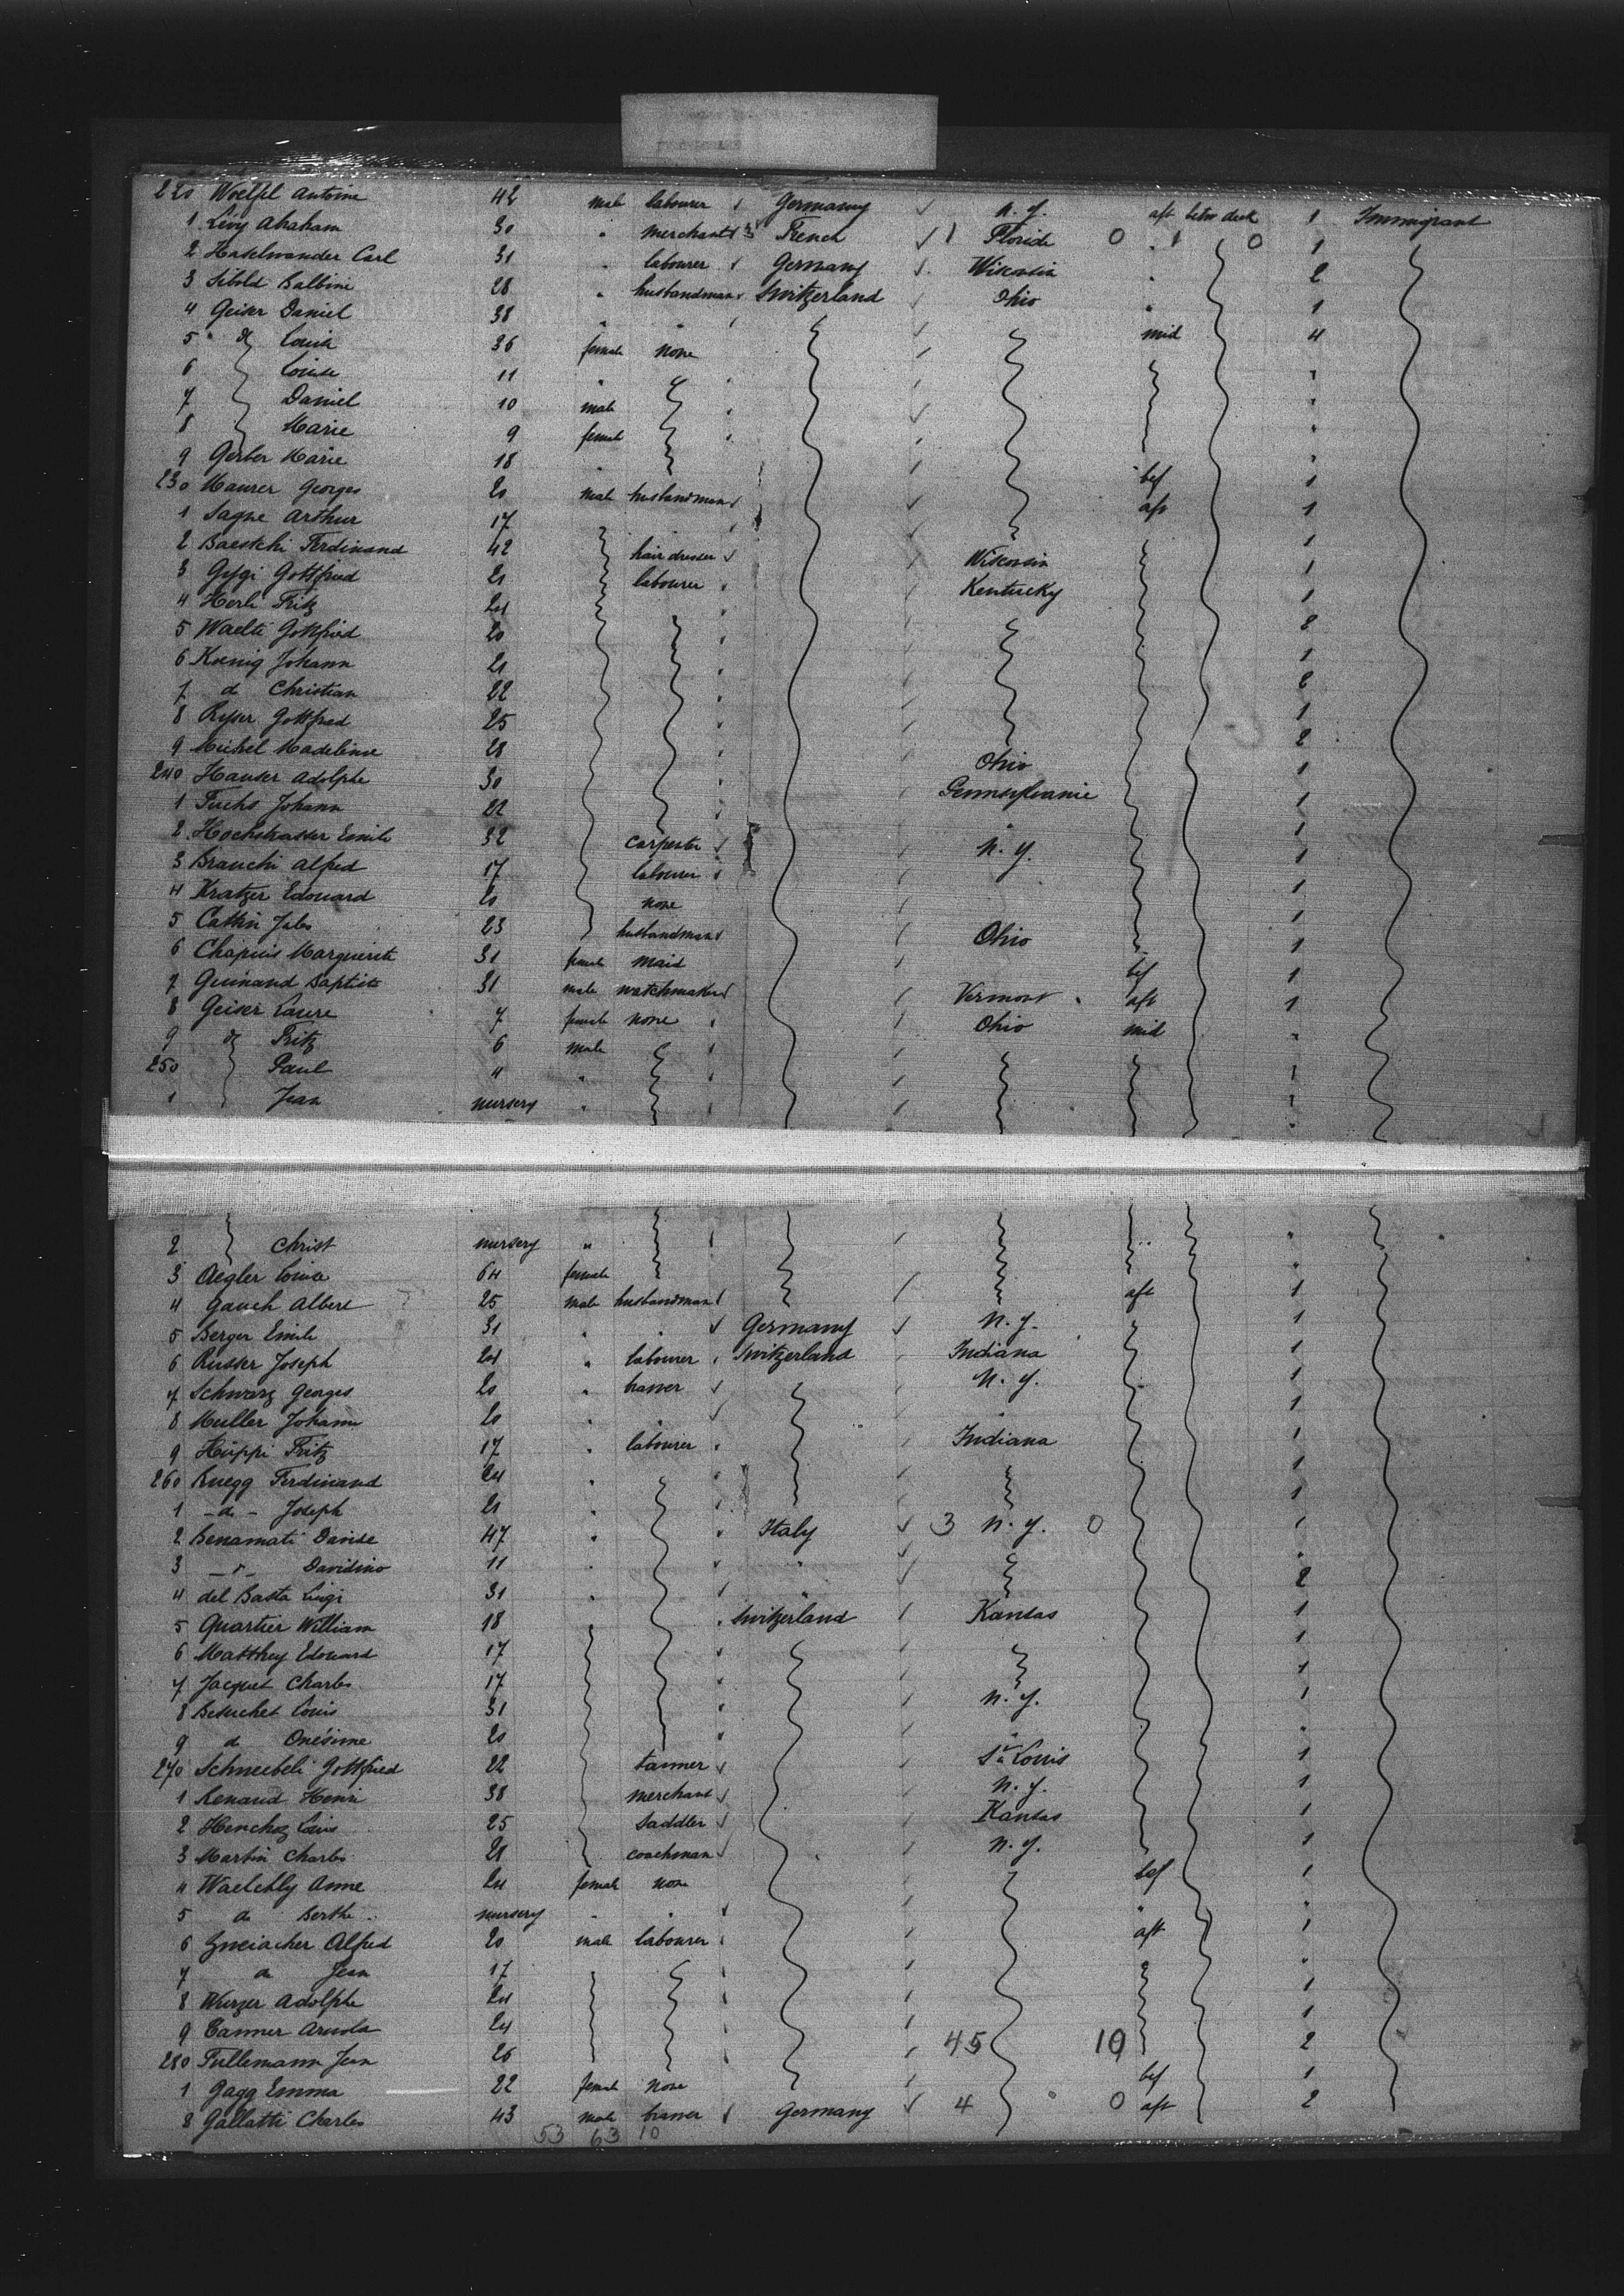 220 Woelfel Antoine 42 male labourer Germany N. Y. aft betw deck 1 Immigrant
1 Levy Abraham 30 " merchant 3 French 1 Floride 0 " 1 0 1
2 Haselwander Carl 31 " labourer Germany Wisconsin " 2
3 Sibold Balbine 28 " husbandman Switzerland Ohio " 1
4 Geiser Daniel 38 " " mid 4
5 " d Louise 36 female none
6 Louise 11 " "
7 Daniel 10 male "
8 Marie 9 female "
9 Gerber Marie 18 " bef 1
230 Maurer Georges 20 male husbandman aft 1
1 Sagne Arthur 17 " 1
2 Baestchi Ferdinand 42 hair dresser Wisconsin 1
3 Gygi Gottfried 21 labourer Kentucky 1
4 Herli Fritz 24 2
5 Waelti Gottfried 20 1
6 Kœnig Johann 21 2
7 d Christian 22 1
8 Ryser Gottfried 25 2
9 Michel Madeleine 28 Ohio 1
240 Hauser Adolphe 30 Pennsylvanie 1
1 Fuchs Johann 22 " 1
2 Hochstrasser Emile 32 carpenter N. Y. 1
3 Brauchi Alfred 17 labourer 1
4 Kratzer Edouard 20 none 1
5 Cattin Jules 23 husbandman Ohio 1
6 Chapuis Marguerite 31 female maid bef 1
7 Guinand Baptiste 31 male watchmaker Vermont aft 1
8 Geiser Laure 7 female none Ohio mid "
9 d Fritz 6 male
250 Paul 4 "
1 Jean nursery "
2 Christ nursery " "
3 Aegler Louise 64 female "
4 Gauch Albert 25 male husbandman aft 1
5 Berger Emile 31 " " Germany N. Y. 1
6 Russer Joseph 24 " labourer Switzerland Indiana 1
7 Schwarz Georges 20 " brasser N. Y. 1
8 Muller Johann 20 " " " 1
9 Hüppi Fritz 17 " labourer Indiana 1
260 Ruegg Ferdinand 24 " 1
1 - d - Joseph 21 " 1
2 Benamati Davide 47 " Italy 3 N. Y. 0 1
3 - d - Davidino 11 " " "
4 del Basta Luigi 31 " " 2
5 Quartier William 18 " Switzerland Kansas 1
6 Matthey Edouard 17 1
7 Jacquet Charles 17 1
8 Betuchet Louis 31 N. Y. 1
9 d Onésime 20 " "
270 Schneebeli Gottfried 22 tanner St Louis 1
1 Renaud Henri 38 merchant N. Y. 1
2 Henchoz Louis 25 saddler Kansas 1
3 Martin Charles 21 coachman N. Y. 1
4 Waelchly Anne 24 female none bef 1
5 d Berthe nursery " " " "
6 Gneiacher Alfred 20 male labourer aft 1
7 d Jean 17 "
8 Wurzer Adolphe 24 1
9 Tanner Arnold 24 1
280 Tullemann Jean 26 45 19 2
1 Gagg Emma 22 female none bef 1
8 Gallatti Charles 43 male brasser Germany 4 0 aft 2
53 63 10